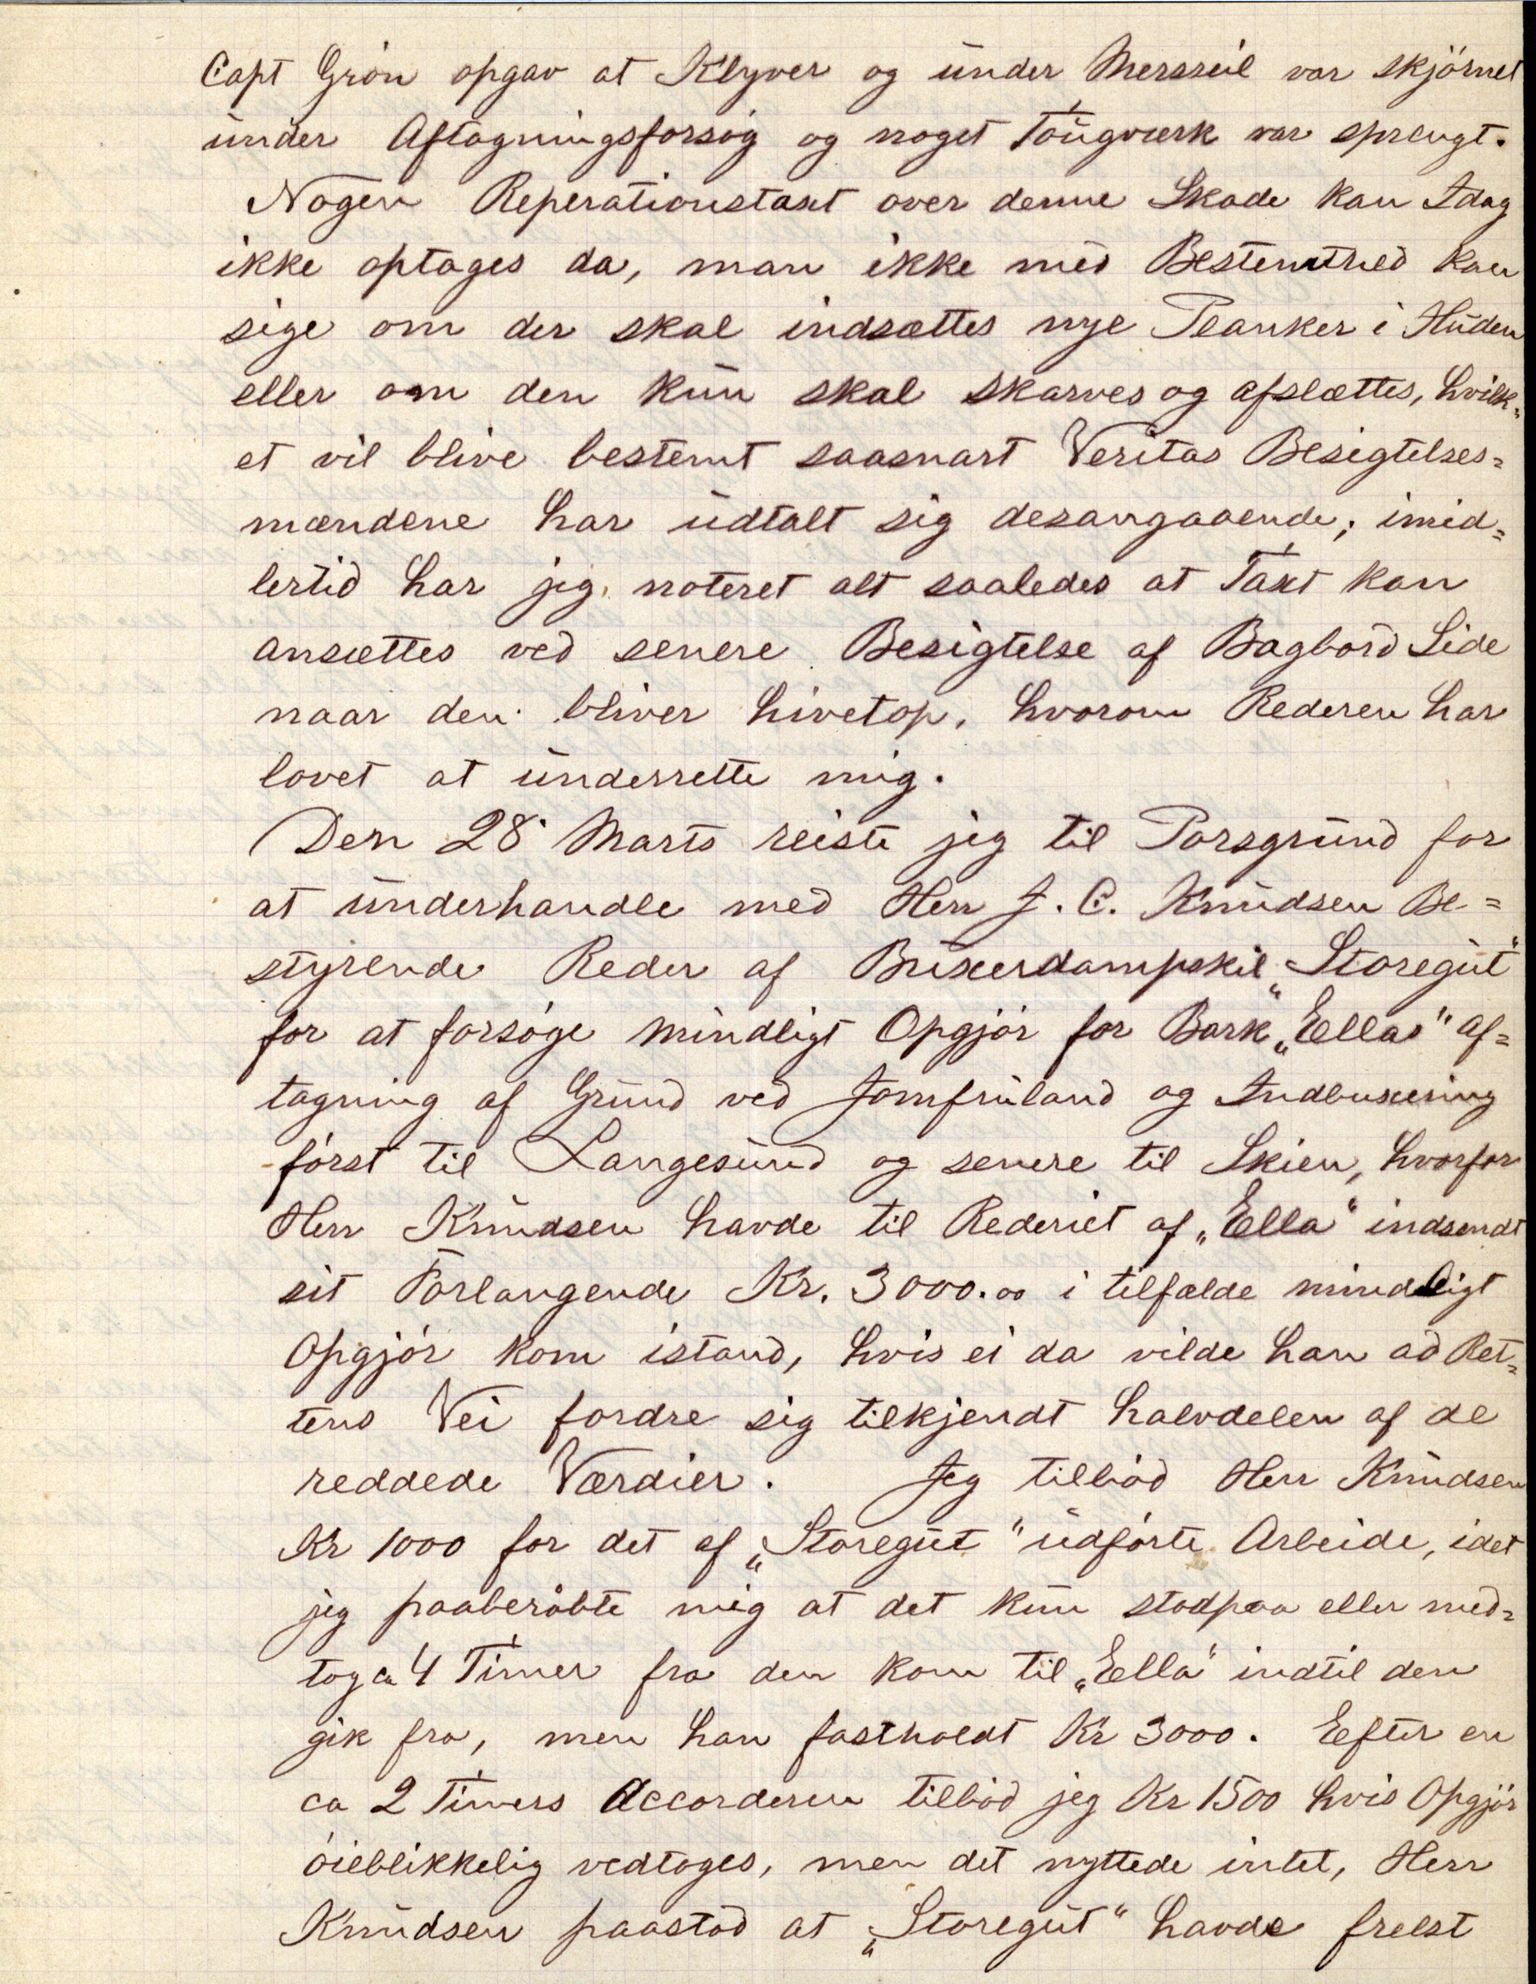 Capt Grön opgav at Klyver og under Mersseil var skjörnet
under Aftagningsforsög og noget Tougværk var sprengt.
Nogen Reperationstaxt over denne Skade kan Idag
ikke optages da, man ikke med Bestemthed kan
sige om der skal indsættes nye Planker i Huden
eller om den kun skal skarves og afslættes, hvilk=
et vil blive bestemt saasnart Veritas Besigtelses=
mændene har udtalt sig desangaaende; imid=
lertid har jeg noteret alt saaledes at Taxt kan
ansættes ved senere Besigtelse af Bagbord Side
naar den bliver hivetop, hvorom Rederen har
lovet at underrette mig.
Den 28 Marts reiste jeg til Porsgrund for
at underhandle med Herr J. C. Knudsen Be=
styrende Reder af Buxerdampskil „Storegut"
for at forsöge mindligt Opgjör for Bark „Ellas" af=
tagning af Grund ved Jomfruland og Indbuxering
först til Langesund og senere til Skien, hvorfor
Herr Knudsen havde til Rederiet af „Ella" indsendt
sit Forlangende Kr. 3000.00 i tilfælde mindeligt
Opgjör kom istand, hvis ei da vilde han ad Ret=
tens Vei fordre sig tilkjendt halvdelen af de
reddede Værdier. Jeg tilböd Herr Knudsen
Kr 1000 for det af „Storegut" udförte Arbeide, idet
jeg paaberöbte mig at det kun stodpaa eller med=
tog ca 4 Timer fra den kom til „Ella" indtil den
gik fra, men han fastholdt Kr 3000. Efter en
ca 2 Timers Accorderen tilböd jeg Kr 1500 hvis Opgjör
öieblikkelig vedtoges, men det nyttede intet, Herr
Knudsen paastod at „Storegut" havde frelst